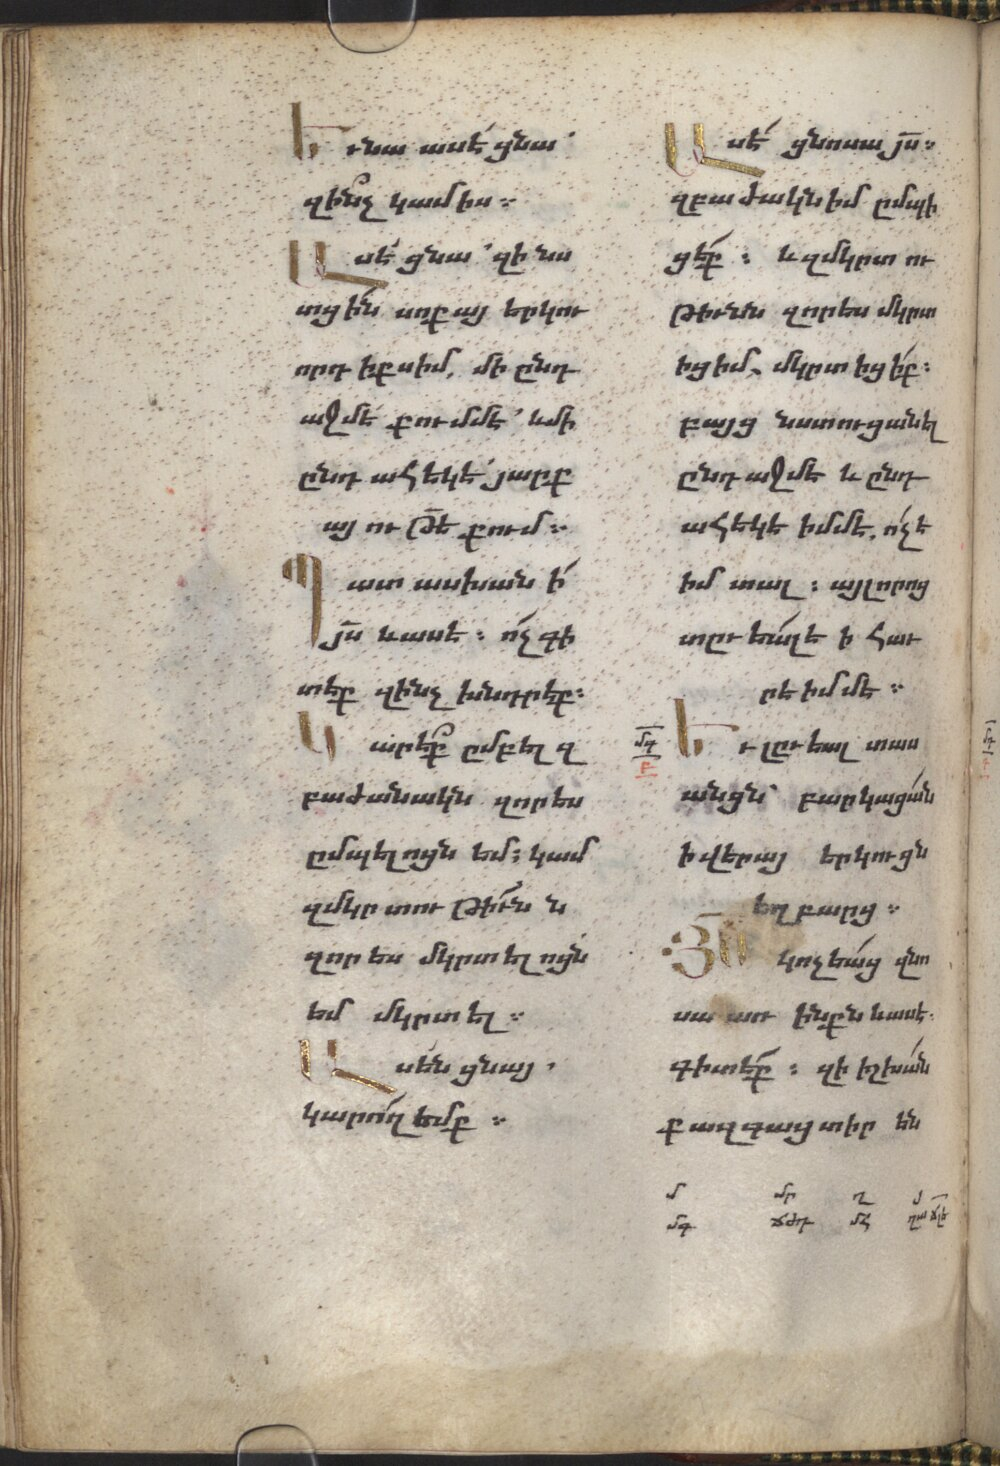 Եւ նա ասէ ցնա՝
զի՞նչ կամիս։
Ասէ ցնա՝ զի նս
տցին սոքայ երկու
որդիքս իմ, մի ընդ
աջմէ քումմէ՝ և մի
ընդ ահեկէ՝ յարք
այութե քում։
Պատասխանի
յս և ասէ։ ո՛չ գի
տէք զինչ խնդրէք։
Կարէ՞ք ըմբել զ
բաժանակն զորես
ըմպելոցն եմ։ կամ
զմկրտութիւնն
զորես մկրտելոցն
եմ մկրտել։
Ասեն ցնայ՝
կարող եմք։
Ասէ ցնոսա յս։
զբաժակն իմ ըմպի
ցէք։ և զմկրտու
թիւնն զորես մկրտ
իցիմ, մկրտիցիք։
բայց նստուցանել
ընդ աջմէ և ընդ
ահեկէ իմմէ, ո՛չ է
իմ տալ։ այլ որոց
տըւեալ է ի հաւ
րէ իմմէ։
մգ
բ
Եւ լըւեալ տաս
անցն՝ բարկացան
ի վերայ երկուցն
եղբարց։
Յս կոչեաց զնո
սա առ ինքն և ասէ.
գիտէք։ զի իշխան
ք ազգաց տիրեն
մ մր ղ յ
մգ ճժդ մհ